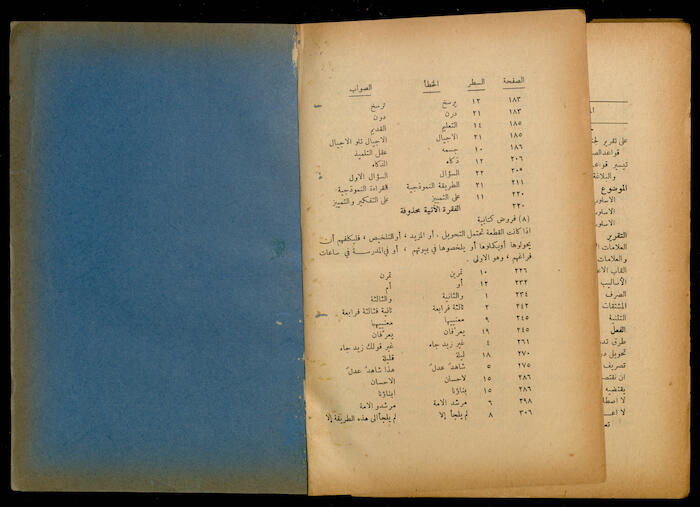 الصفحة السطر الخطأ الصواب
١٨٣ ١٢ يرسخ ترسخ
١٨٣ ٢١ درن دون
١٨٥ ١٤ التعليم القديم
١٨٥ ٢١ الاجيال الاجيال تلو الاجيال
١٨٦ ١٠ جسمه عقل التلميذ
٢٠٦ ١٢ ذكاء الذكاء
٢٠٩ ٢٢ السؤال السؤال الاول
٢١١ ٢١ الطريقة النموذجية القراءة النموذجية
٢٢٠ ١١ على التمييز على التفكير والتمييز
٢٢٠ الفقرة الآتية محذوفة
(٨) فروض كتابية
اذا كانت القطعة تحتمل التحويل، أو المزيد، أو التلخيص، فليكلفهم أن
يحولوها أو يكملوها أو يلخصوها في بيوتهم، أو في المدرسة في ساعات
فراغهم، وهو الاولى.
٢٢٦ ١٠ تمرين تمرن
٢٣٢ ١٢ أو أم
٢٣٤ ١ والثانية والثالثة
٢٤٢ ٢ ثالثة فرابعة ثانية فثالثة فرابعة
٢٤٥ ٩ معنييها معنييهما
٢٤٥ ١٩ يعرفان يعرفان
٢٦١ ٤ غير زيد جاء غير قولك زيد جاء
٢٧٠ ١٨ ليلة قليلة
٢٧٥ ٥ شاهد عدل هذا شاهد عدل
٢٨٦ ١٥ لاحسان الاحسان
٢٨٦ ١٥ بناؤنا ابناؤنا
٢٩٨ ٦ مرشد الامة مرشدو الامة
٣٠٦ ٨ لم يلجأ إلا لم يلجأ الى هذه الطريقة إلا
على تقرير
قواعد
تيسير قواعد
والبلاغة
الموضوع
التقرير
العلامات
والعلامات
القاب
الأساليب
الصرف
المشتقات
التثنية
الفعل
طرق
تحويل
تصريف
ان
يقتضيه
لا
لا